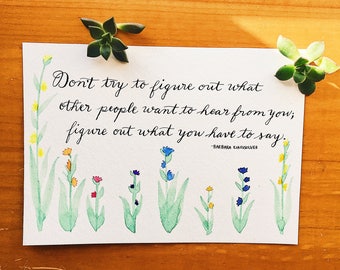 Don't try to figure out what
other people want to hear from you;
figure out what you have to say.
-BARBARA KINGSOLVER